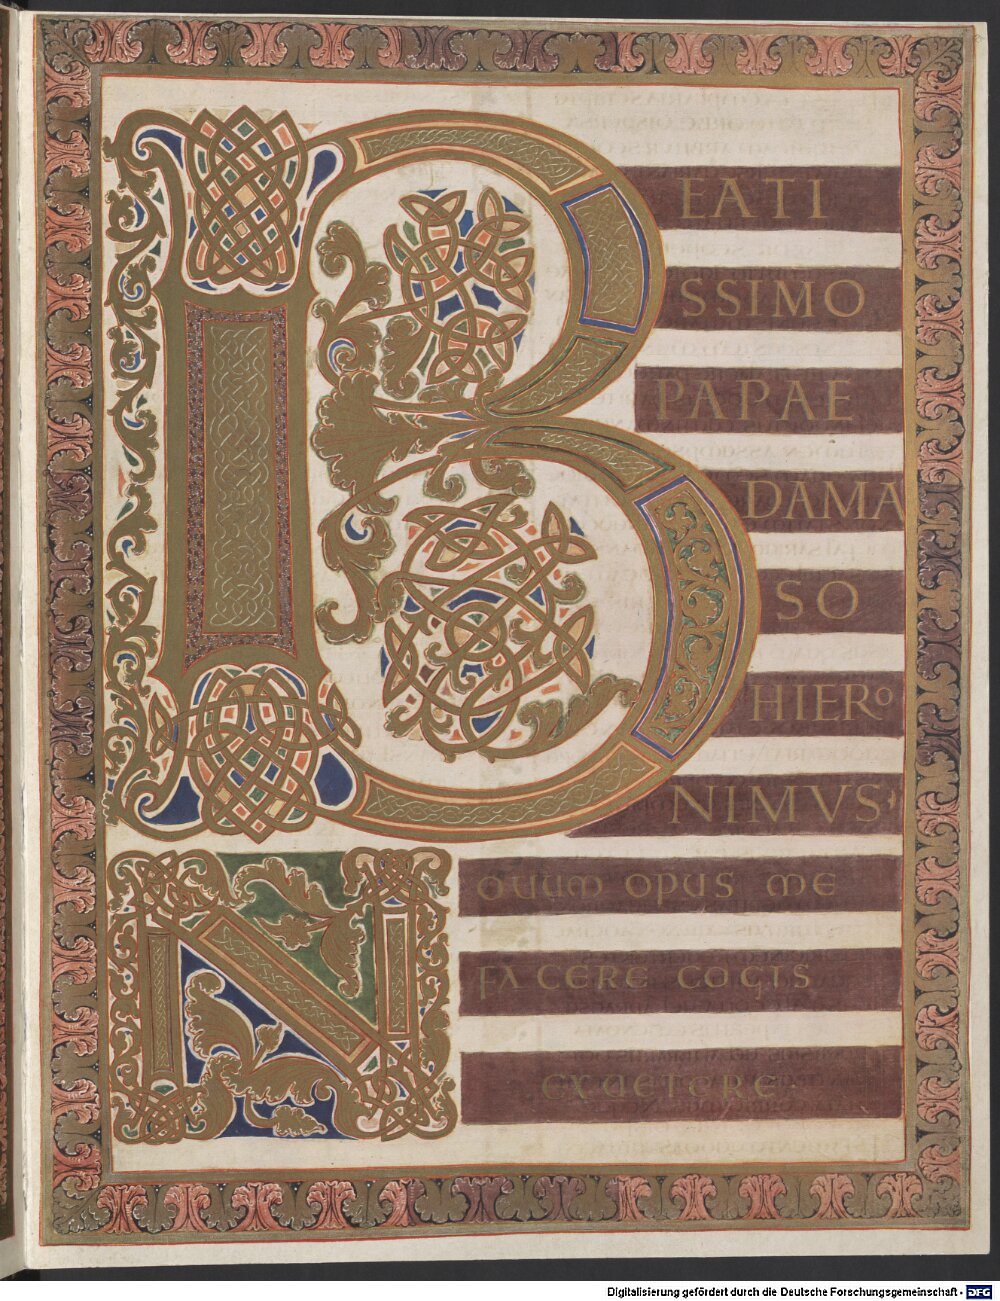 BEATI
SSIMO
PAPAE
DAMA
SO
HIERO
NIMVS
NOUUM OPUS ME
FACERE COGIS
EXUETERE
Digitalisierung gefördert durch die Deutsche Forschungsgemeinschaft - DFG